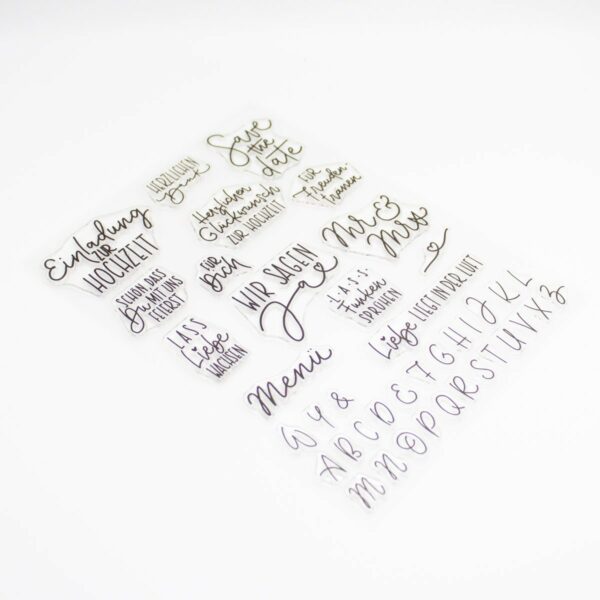 Save
the
date
HERZLICHEN
Dank
FÜR
Freuden-
tränen
Herzlichen
Glückwunsch
ZUR HOCHZEIT
Einladung
ZUR
HOCHZEIT
Mr &
Mrs
FÜR
Dich
WIR SAGEN
Ja
SCHÖN, DASS
Du MIT UNS
FEIERST
L·A·S·S
Funken
SPRÜHEN
LASS
Liebe
WACHSEN
Liebe LIEGT IN DER LUFT
Menü
W Y &
A B C D E F G H I J K L
M N O P Q R S T U V X Z